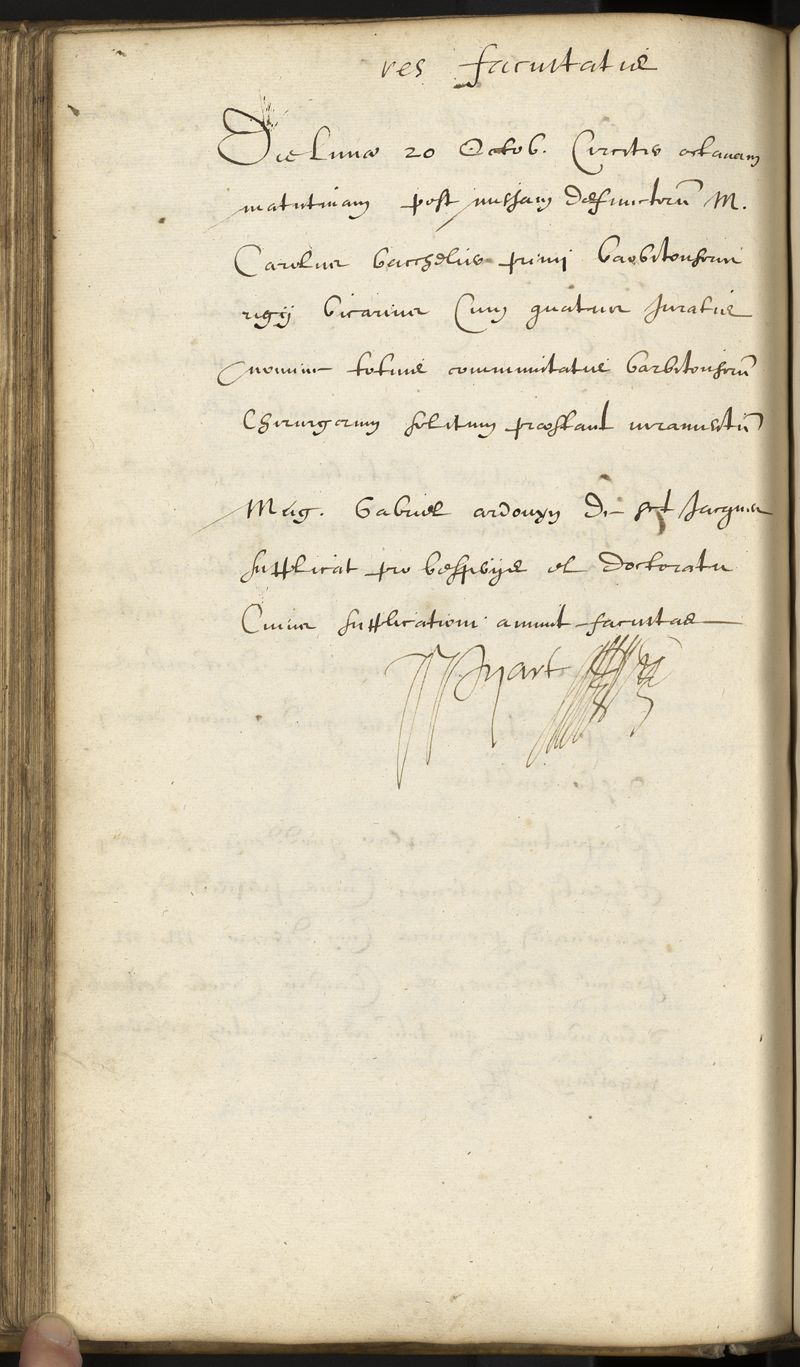 res facultatis
Die Lunæ 20 Octob. Circiter octavam
matutinam post missam defunctorũ M.
Carolus primi barbitonsoris
regij vicarius cum quatuor Juratis
nomine totius communitatis barbitonsorũ
Chirurgorum solitum præstant iuramentũ
Mag. Gabriel ardouyn De sct Jacques
supplicat pro vesperijs et doctoratu
Cuius supplicationi annuit facultas